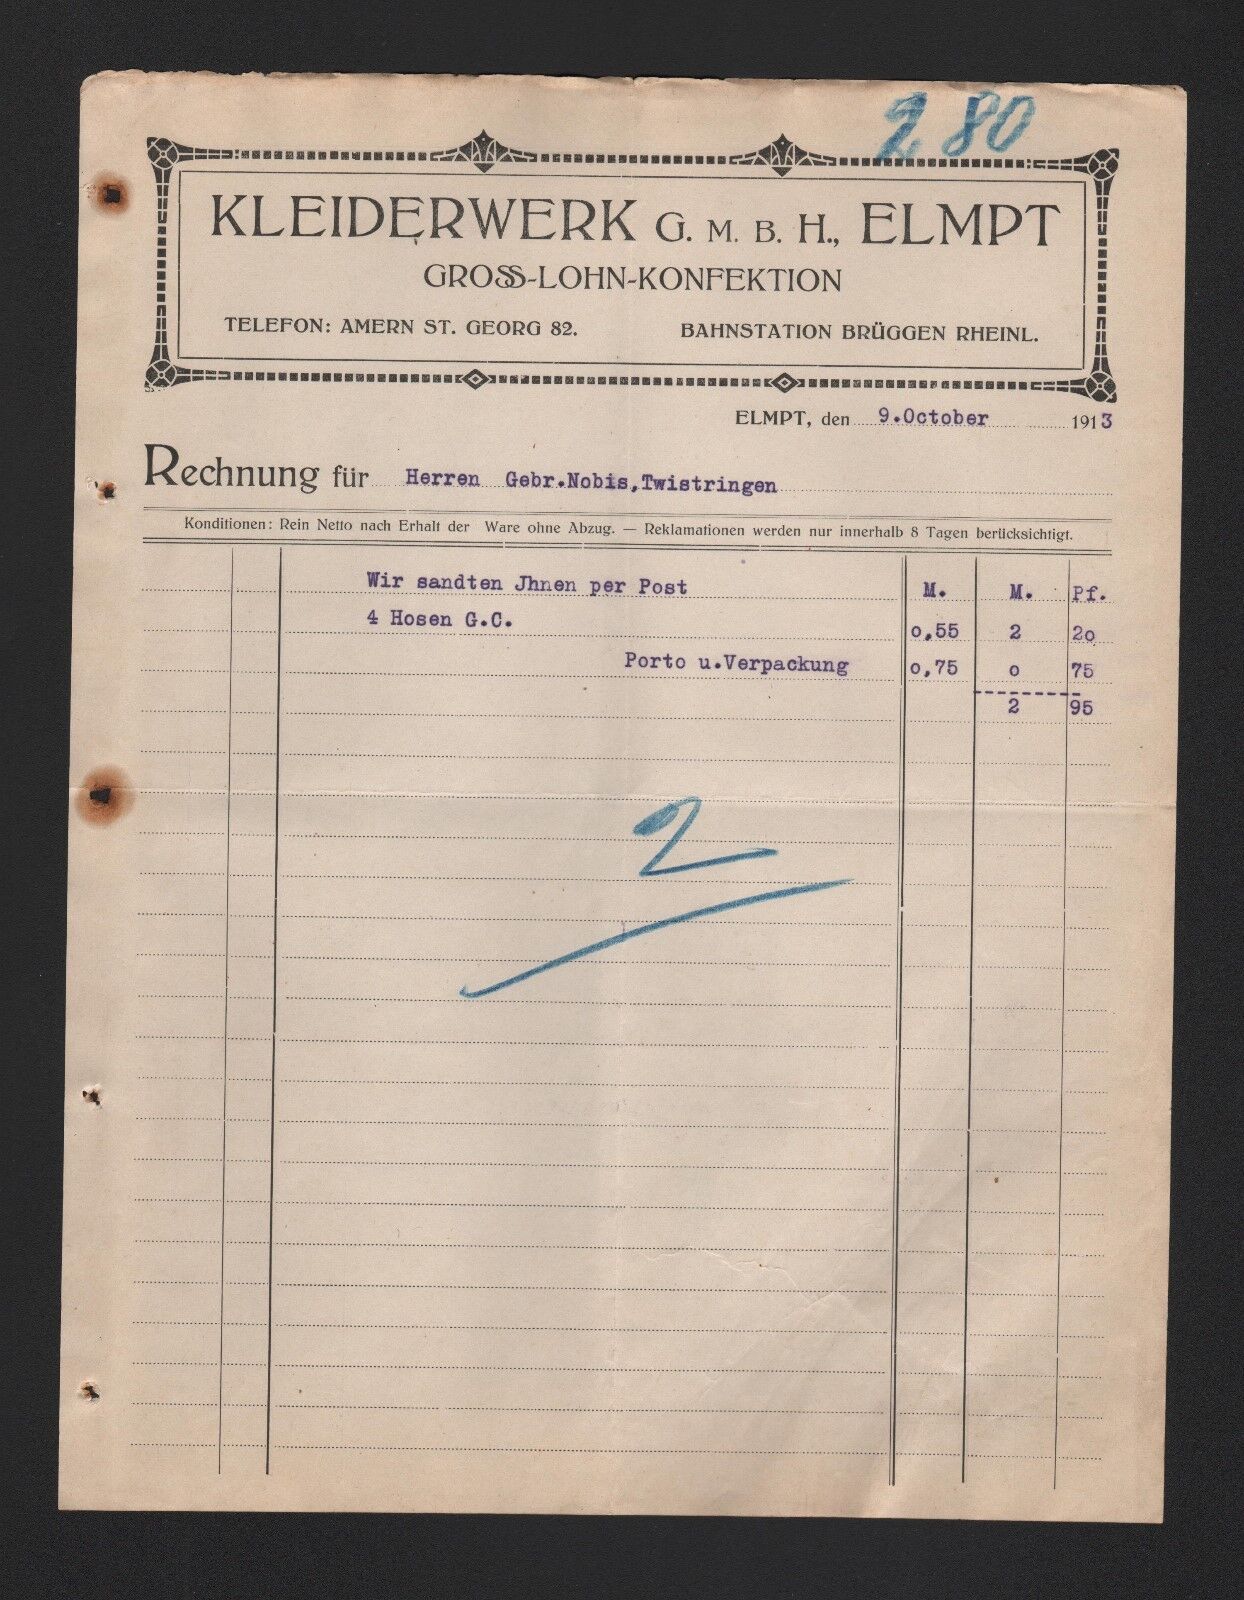 2 80
KLEIDERWERK G. M. B. H., ELMPT
GROSS-LOHN-KONFEKTION
TELEFON: AMERN ST. GEORG 82. BAHNSTATION BRÜGGEN RHEINL.
ELMPT, den 9.October 1913
Rechnung für Herren Gebr.Nobis,Twistringen
Konditionen: Rein Netto nach Erhalt der Ware ohne Abzug. — Reklamationen werden nur innerhalb 8 Tagen berücksichtigt.
Wir sandten Jhnen per Post M. M. Pf.
4 Hosen G.C. o,55 2 2o
Porto u.Verpackung o,75 o 75
2 95
2